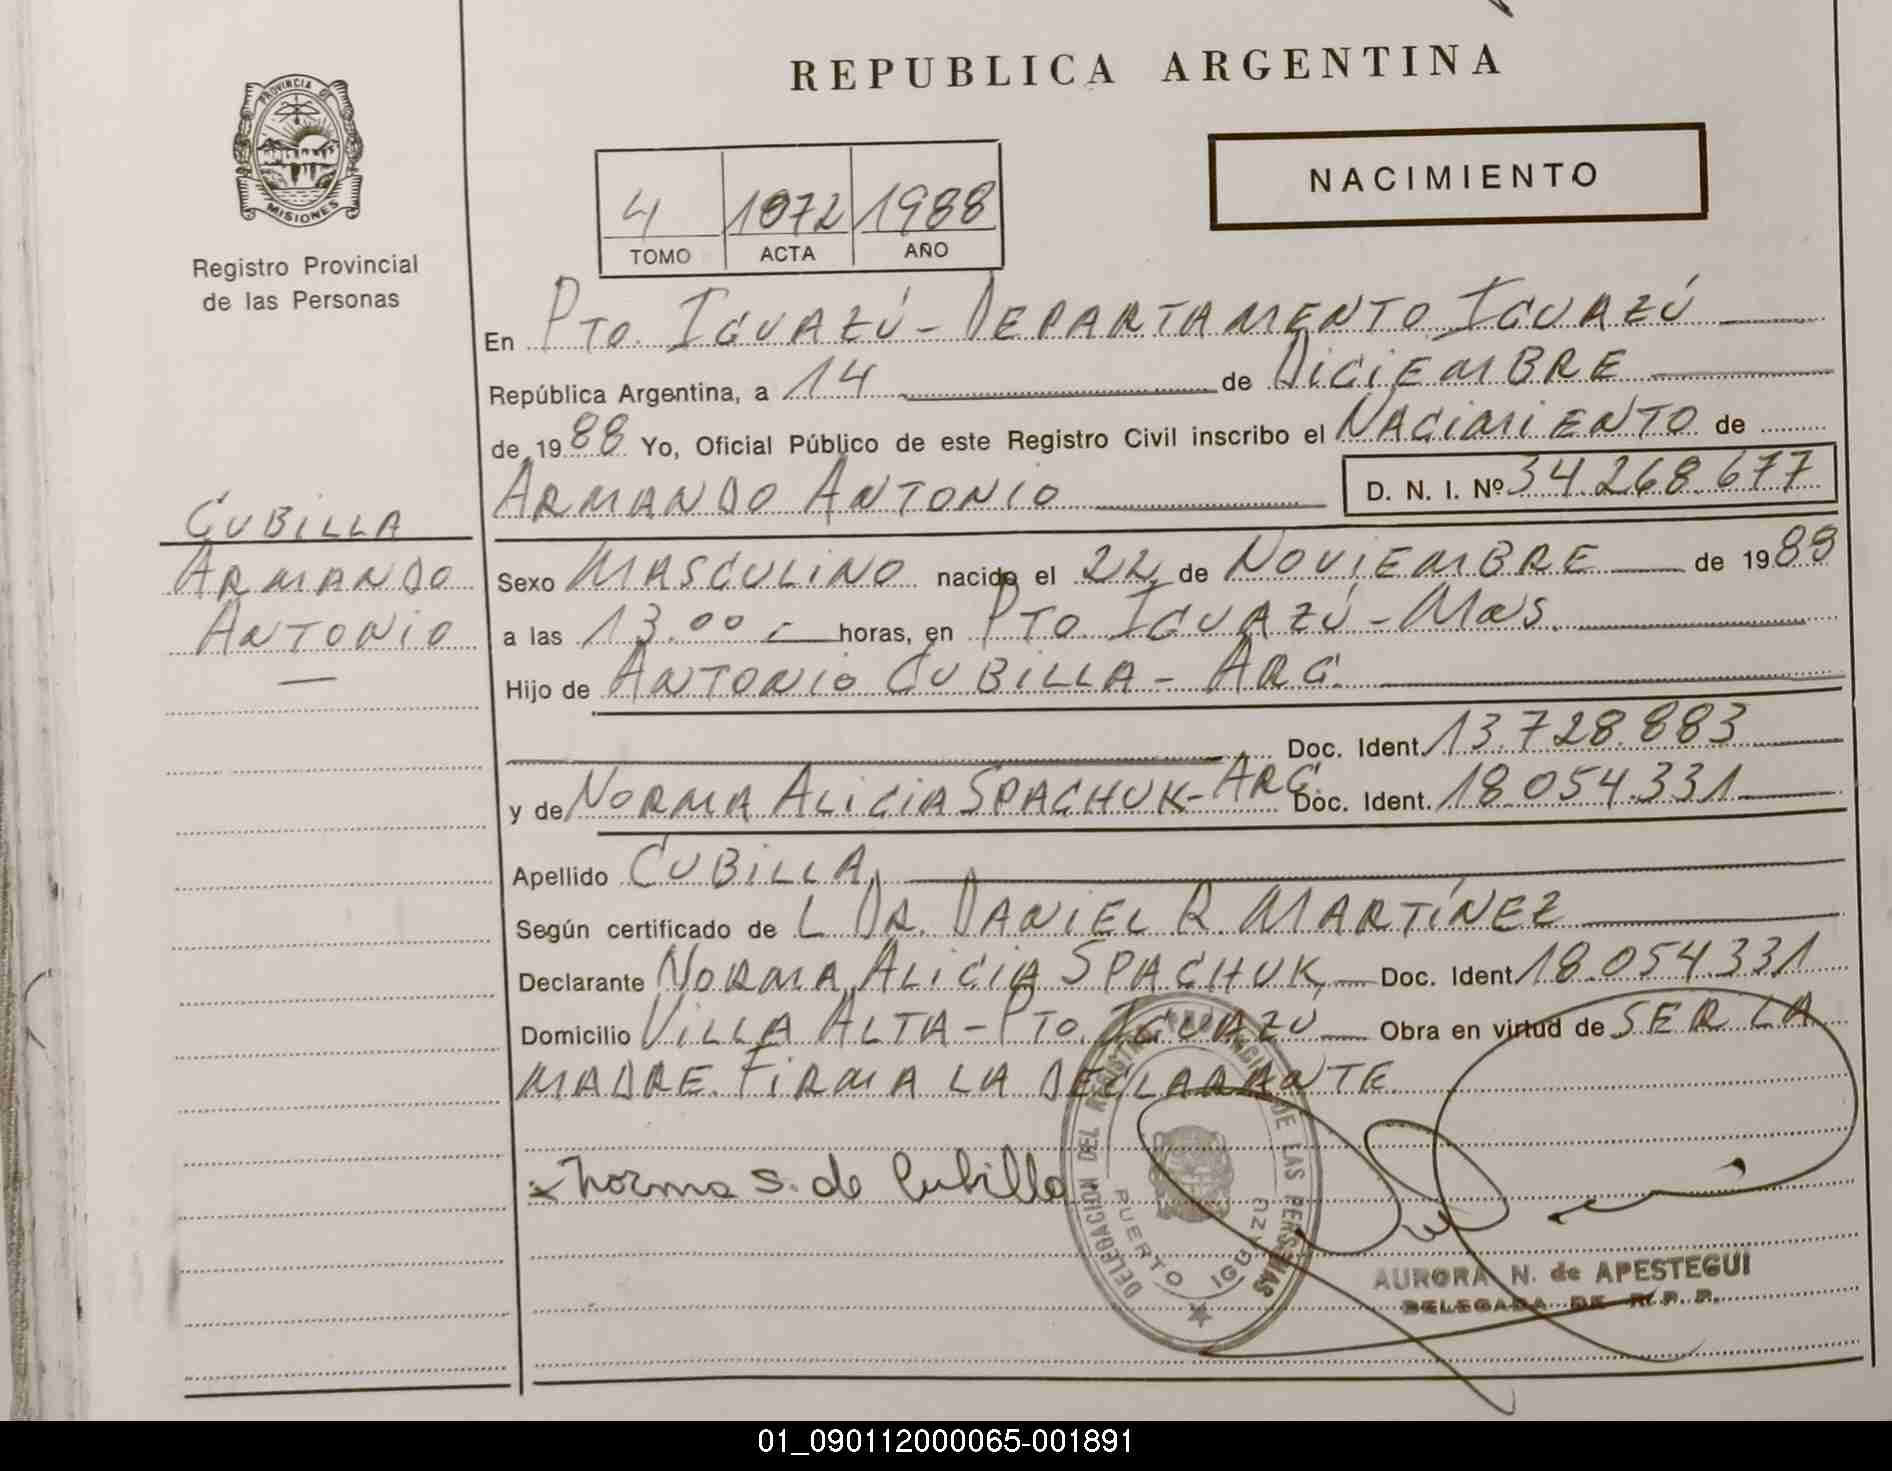 REPUBLICA ARGENTINA
PROVINCIA DE
MISIONES
Registro Provincial
de las Personas
NACIMIENTO
4 1072 1988
TOMO ACTA AÑO
En PTO. IGUAZÚ - DEPARTAMENTO IGUAZÚ
República Argentina, a 14 de DICIEMBRE
de 1988 Yo, Oficial Público de este Registro Civil inscribo el NACIMIENTO de
ARMANDO ANTONIO D. N. I. Nº 34.268.677
CUBILLA
ARMANDO
ANTONIO
Sexo MASCULINO nacido el 22 de NOVIEMBRE de 1988
a las 13.00 horas, en PTO. IGUAZÚ - Mns.
Hijo de ANTONIO CUBILLA - ARG.
Doc. Ident. 13.728.883
y de NORMA ALICIA SPACHUK - ARG. Doc. Ident. 18.054.331
Apellido CUBILLA
Según certificado de L DR. DANIEL R. MARTÍNEZ
Declarante NORMA ALICIA SPACHUK, Doc. Ident. 18.054.331
Domicilio VILLA ALTA - PTO. IGUAZU Obra en virtud de SER LA
MADRE. FIRMA LA DECLARANTE.
x Norma S. de Cubilla
DELEGACION DEL REGISTRO PROVINCIAL DE LAS PERSONAS
PUERTO IGUAZU
AURORA N. de APESTEGUI
DELEGADA DE R. P. P.
01_090112000065-001891